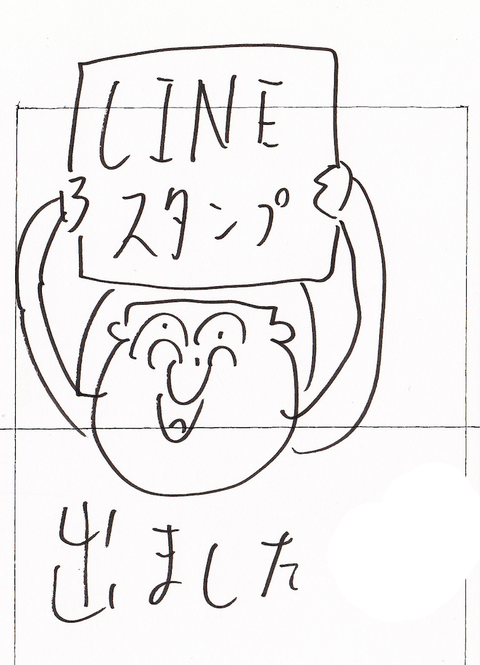 LINE
スタンプ
出ました